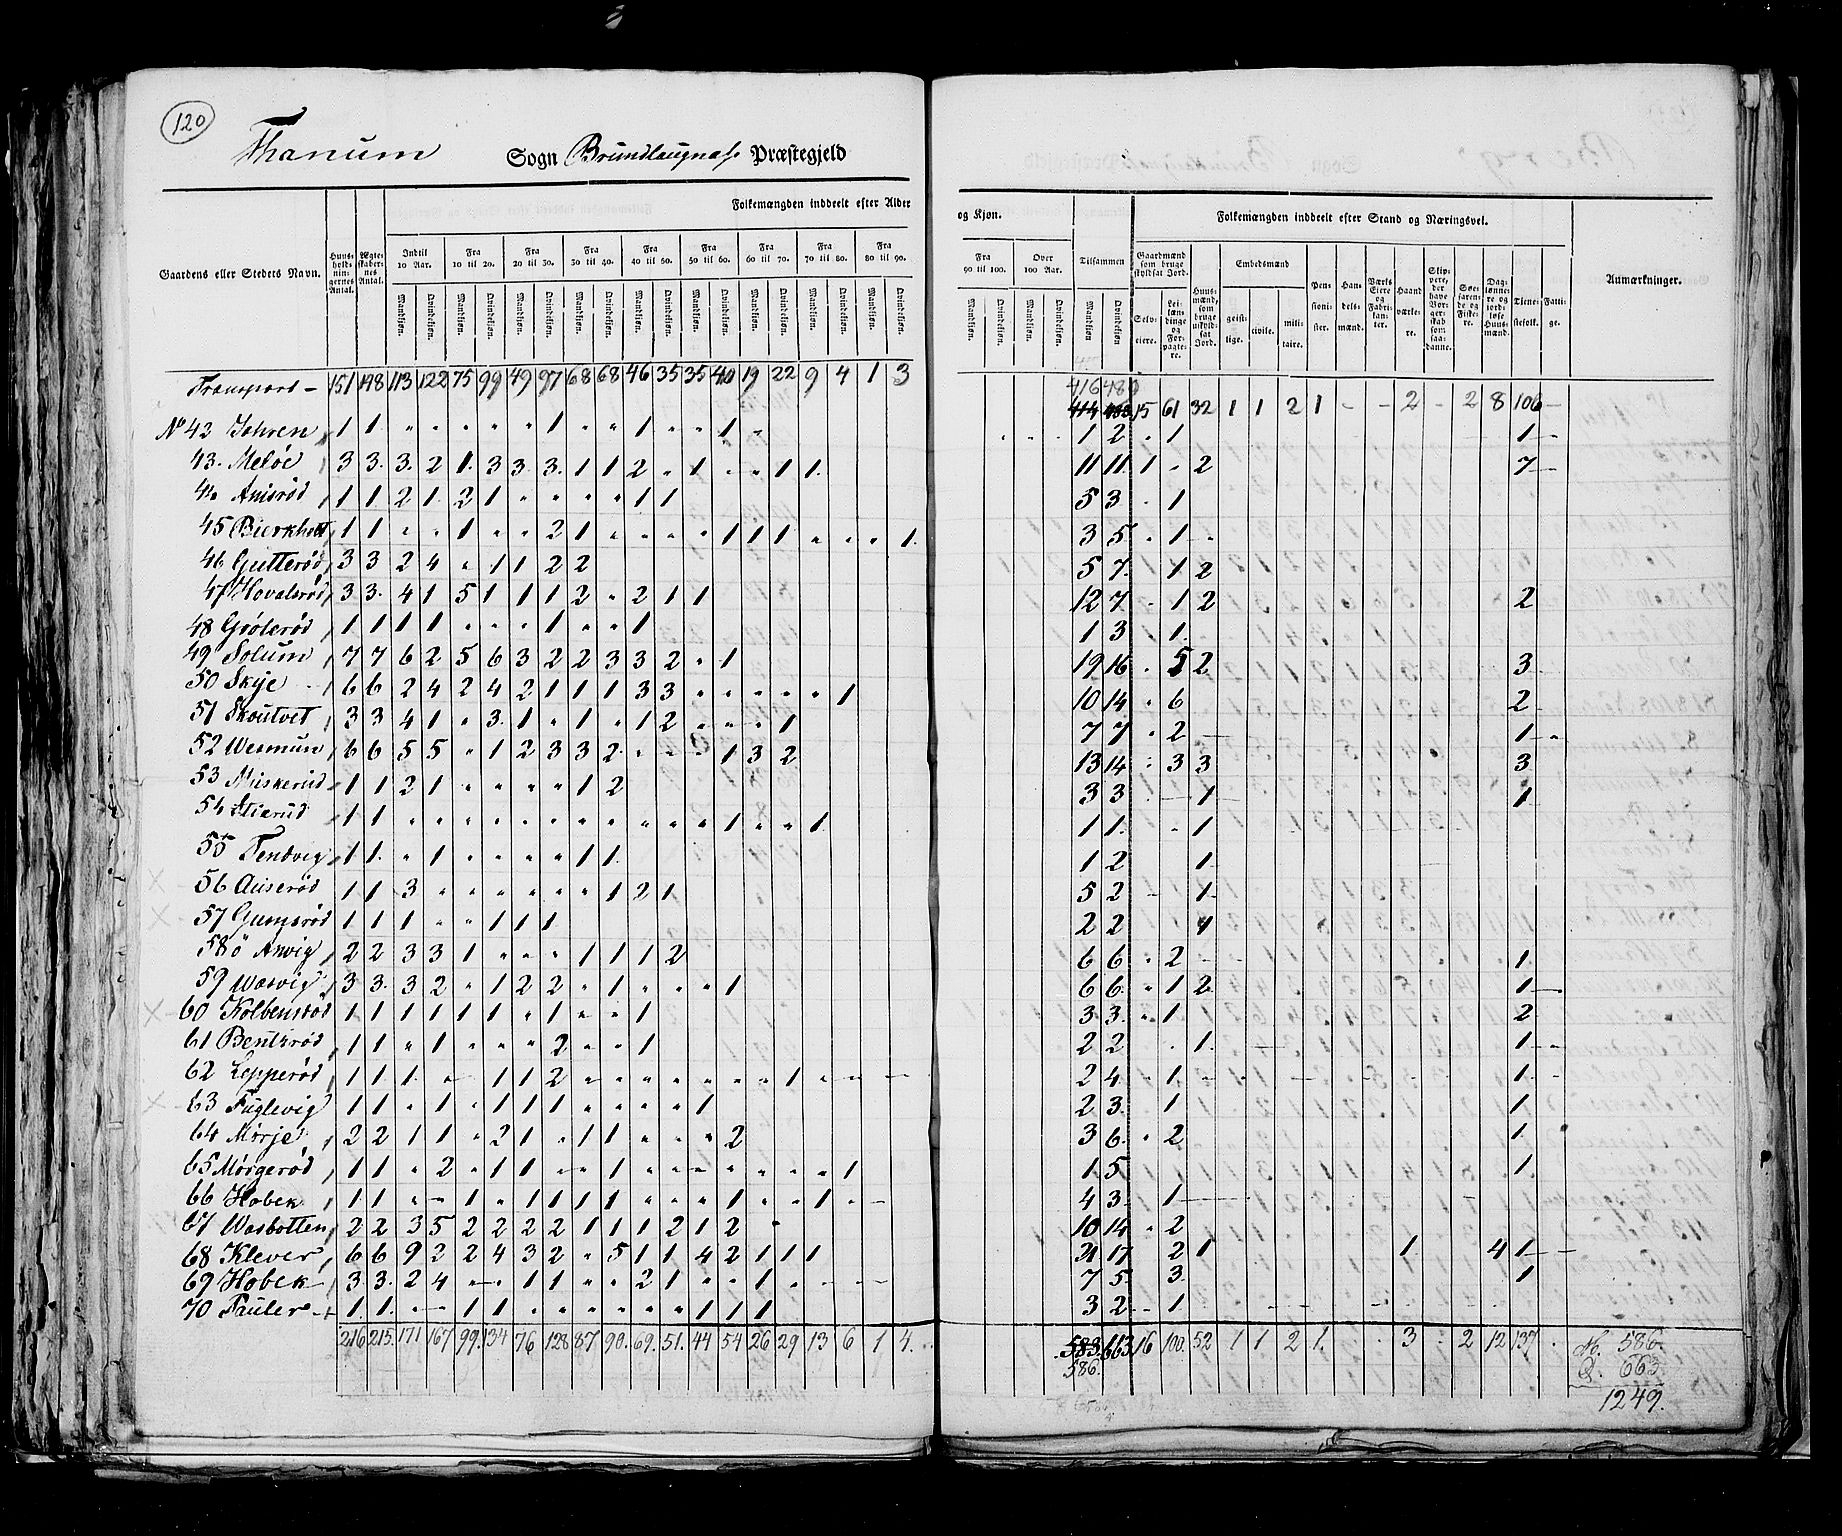 120
Thanum Sogn Brunlaugnæs Præstegjeld
Folkemængden inddeelt efter Alder og Kjøn. Folkemængden inddeelt efter Stand og Næringsvei.
Gaardens eller Stedets Navn. Huus-hold-nin-gernes Antal. Ægte-skaber-nes Antal. Indtil 10 Aar. Fra 10 til 20. Fra 20 til 30. Fra 30 til 40. Fra 40 til 50. Fra 50 til 60. Fra 60 til 70. Fra 70 til 80. Fra 80 til 90. Fra 90 til 100. Over 100 Aar. Tilsammen Gaardmænd som bruge skyldsat Jord. Huus-mænd, som bruge uskyld-sat Jord. Embedsmænd Pen-sioni-ster. Han-dels-mænd. Værks Eiere og Fabri-kan-ter. Haand-værke-re. Skip-pere, der have Bor-ger-skab som saa-danne. Søe-farende og Fiske-re. Dag-lønne-re og jord-løse Huus-mænd. Tiene-stefolk. Fatti-ge. Anmærkninger.
Mandkjøn. Qvindekjøn. Selv-eiere. Lei-læn-dinge og For-pagte-re. geist-lige. civile. mili-taire.
Transport - 151 148 113 122 75 99 49 97 68 68 46 35 35 40 19 22 9 4 1 3 416 480 15 61 32 1 1 2 1 - - 2 - 2 8 106 -
No 42 Johren 1 1 " " " " " 1 " " 1 " " 1 " 1 2 " 1 1 -
43. Meløe 3 3. 3. 2 1. 3 3. 3. 1 1 2 " 1 - " 1 1. 11 11. 1 " 2 7
44 Anisrød 1 1 2 1. 2 1 " " " " 1 1 5 3. " 1
45 Bierkholt 1 1 " " 1 " " 2 1 " " " " 1 1 1 " " " 1. 3 5. " 1 "
46 Gutterød 3 3 2 4 " 1 1 2 2 5 7. " 1 2
47 Hovalsrød 3 3. 4 1 5 1 1 1 2 " 2 1 1 12 7 " 1 2 2
48 Grølsrød 1 1 1 1 " " " 1 " " 1 1 3 " 1.
49 Solum 7 7 6 2 5 6 3 2 2 3 3 2 " 1 19 16 " 5 2 3
50 Skije 6 6 2 4 2 4 2 1 1 1 3 3 " " " " " 1 10 14 " 6 2
51 Skoutvet 3 3 4 1 " 3. 1 " 1 " 1 2 " " " 1 7 7 " 2 1 "
52 Wemun 6 6 5 5 " 1 2 3 3 2 " " " 1 3 2 13 14 " 3 3 3
53 Miskerud 1 1 2 1 " " " " 1 2 3 3 - 1 1
54 1 1 " " " " " " " " " " " 1 " " 1 1 1. " 1
55 Tendvig 1 1. " 1 " " " " 1 1. 1 2 1
56 Auserød 1 1 3 " " " " " " 1 2 1 5 2 - 1
57 Gumsrød 1 1 1 " " 1 1 1 2 2 1
58 Ø Anvig 2 2 3 3 1 " " " 1 1 1 2 6 6 " 2 1
59 Wasvig 3 3. 3 2 " 1 2 2 " 1 " " " 1 6 6. " 1 2 1
60 Kolbensrød 1 1 1 1 1 1 " 1 " " 1 3 3. " 1 2
61 Bentsrød 1 1 " 1 " " " 2 " " 1 2 2 " 1. 1
62 Lepperød 1 1 1 " 1 1 2 " " " " " " " 1 " " 2 4 " 1 1
63 Fuglevig 1 1 " 1 " 1 1 1 " " " " 1 2 3. 1 1
64 Mørje 2 2 1 1 " 2 1 " 1 1 " " " 2 3 6. " 2 1
65 Mørgerød 1 1 " 2 " 1 1 " " 1 " " " " " " " 1 1 5 1
66 Hobek 1 1 " " 1 " 1 1 1 1 " " " 1 " " 1 " 4 3 " 1
67 Wasbotten 2 2 3 5 2 2 2 2 1 1 1 2 1 2 10 14 " 2
68 Klever 6 6 9 2 2 4 3 2 " 5 1 1 4 2 1 1 1 21 17 " 2 1 1 4 1
69 Hobek 3 3. 2 4 " " 1 1 " " 2 1 " " 1 " 7 5. 3. 1
70 Pauler 1 1. " " 1 1 " " " " " " 1 1 1 3 2 " 1
216 215. 171 167 99. 134 76 128 87 90. 69. 51. 44 54 26 29 13 6 1 4. 583. 663. 16 100. 52 1 1 2 1. 3 2 12 137 M. 586.
586. Q. 663
1249.